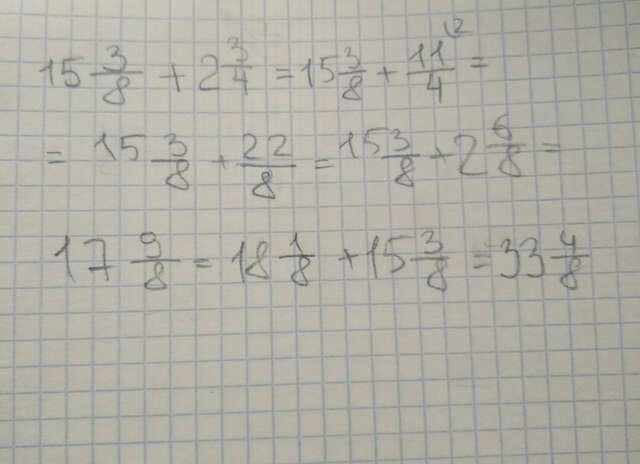 15 3/8 + 2 3/4 = 15 3/8 + 11/4 \2 =
= 15 3/8 + 22/8 = 15 3/8 + 2 6/8 =
17 9/8 = 18 1/8 + 15 3/8 = 33 4/8